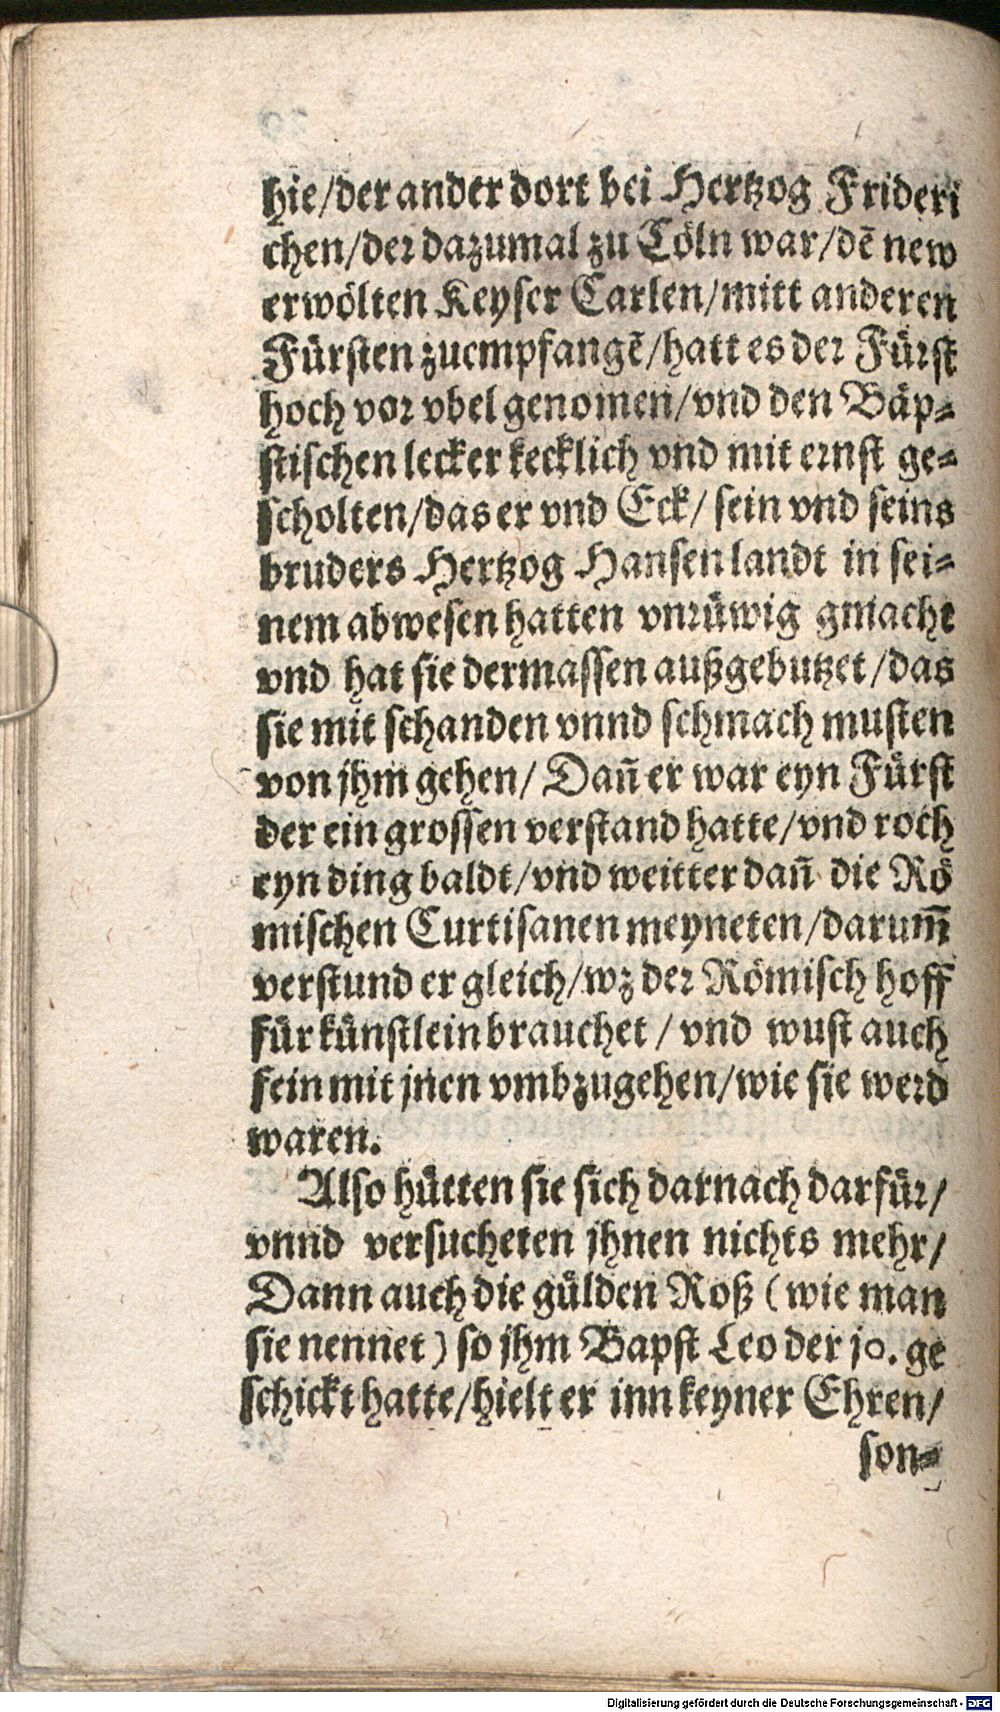 hie/der ander dort bei Hertzog Frideri
chen/der dazumal zu Cöln war/dē new
erwölten Keyser Carlen/mitt anderen
Fürsten zuempfangē/hatt es der Fürst
hoch vor vbel genomen/vnd den Bäp-
stischen lecker kecklich vnd mit ernst ge-
scholten/das er vnd Eck/ sein vnd seins
bruders Hertzog Hansen landt in sei-
nem abwesen hatten vnrüwig gmacht
vnd hat sie dermassen außgebutzet/das
sie mit schanden vnnd schmach musten
von jhm gehen/ Dañ er war eyn Fürst
der ein grossen verstand hatte/vnd roch
eyn ding baldt/vnd weitter dañ die Rö
mischen Curtisanen meyneten/darum̄
verstund er gleich/wz der Römisch hoff
für künstlein brauchet / vnd wust auch
fein mit jnen vmbzugehen/wie sie werd
waren.
Also hütten sie sich darnach darfür/
vnnd versucheten jhnen nichts mehr/
Dann auch die gülden Roß (wie man
sie nennet) so jhm Bapst Leo der jo. ge
schickt hatte/hielt er inn keyner Ehren/
son-
Digitalisierung gefördert durch die Deutsche Forschungsgemeinschaft - DFG